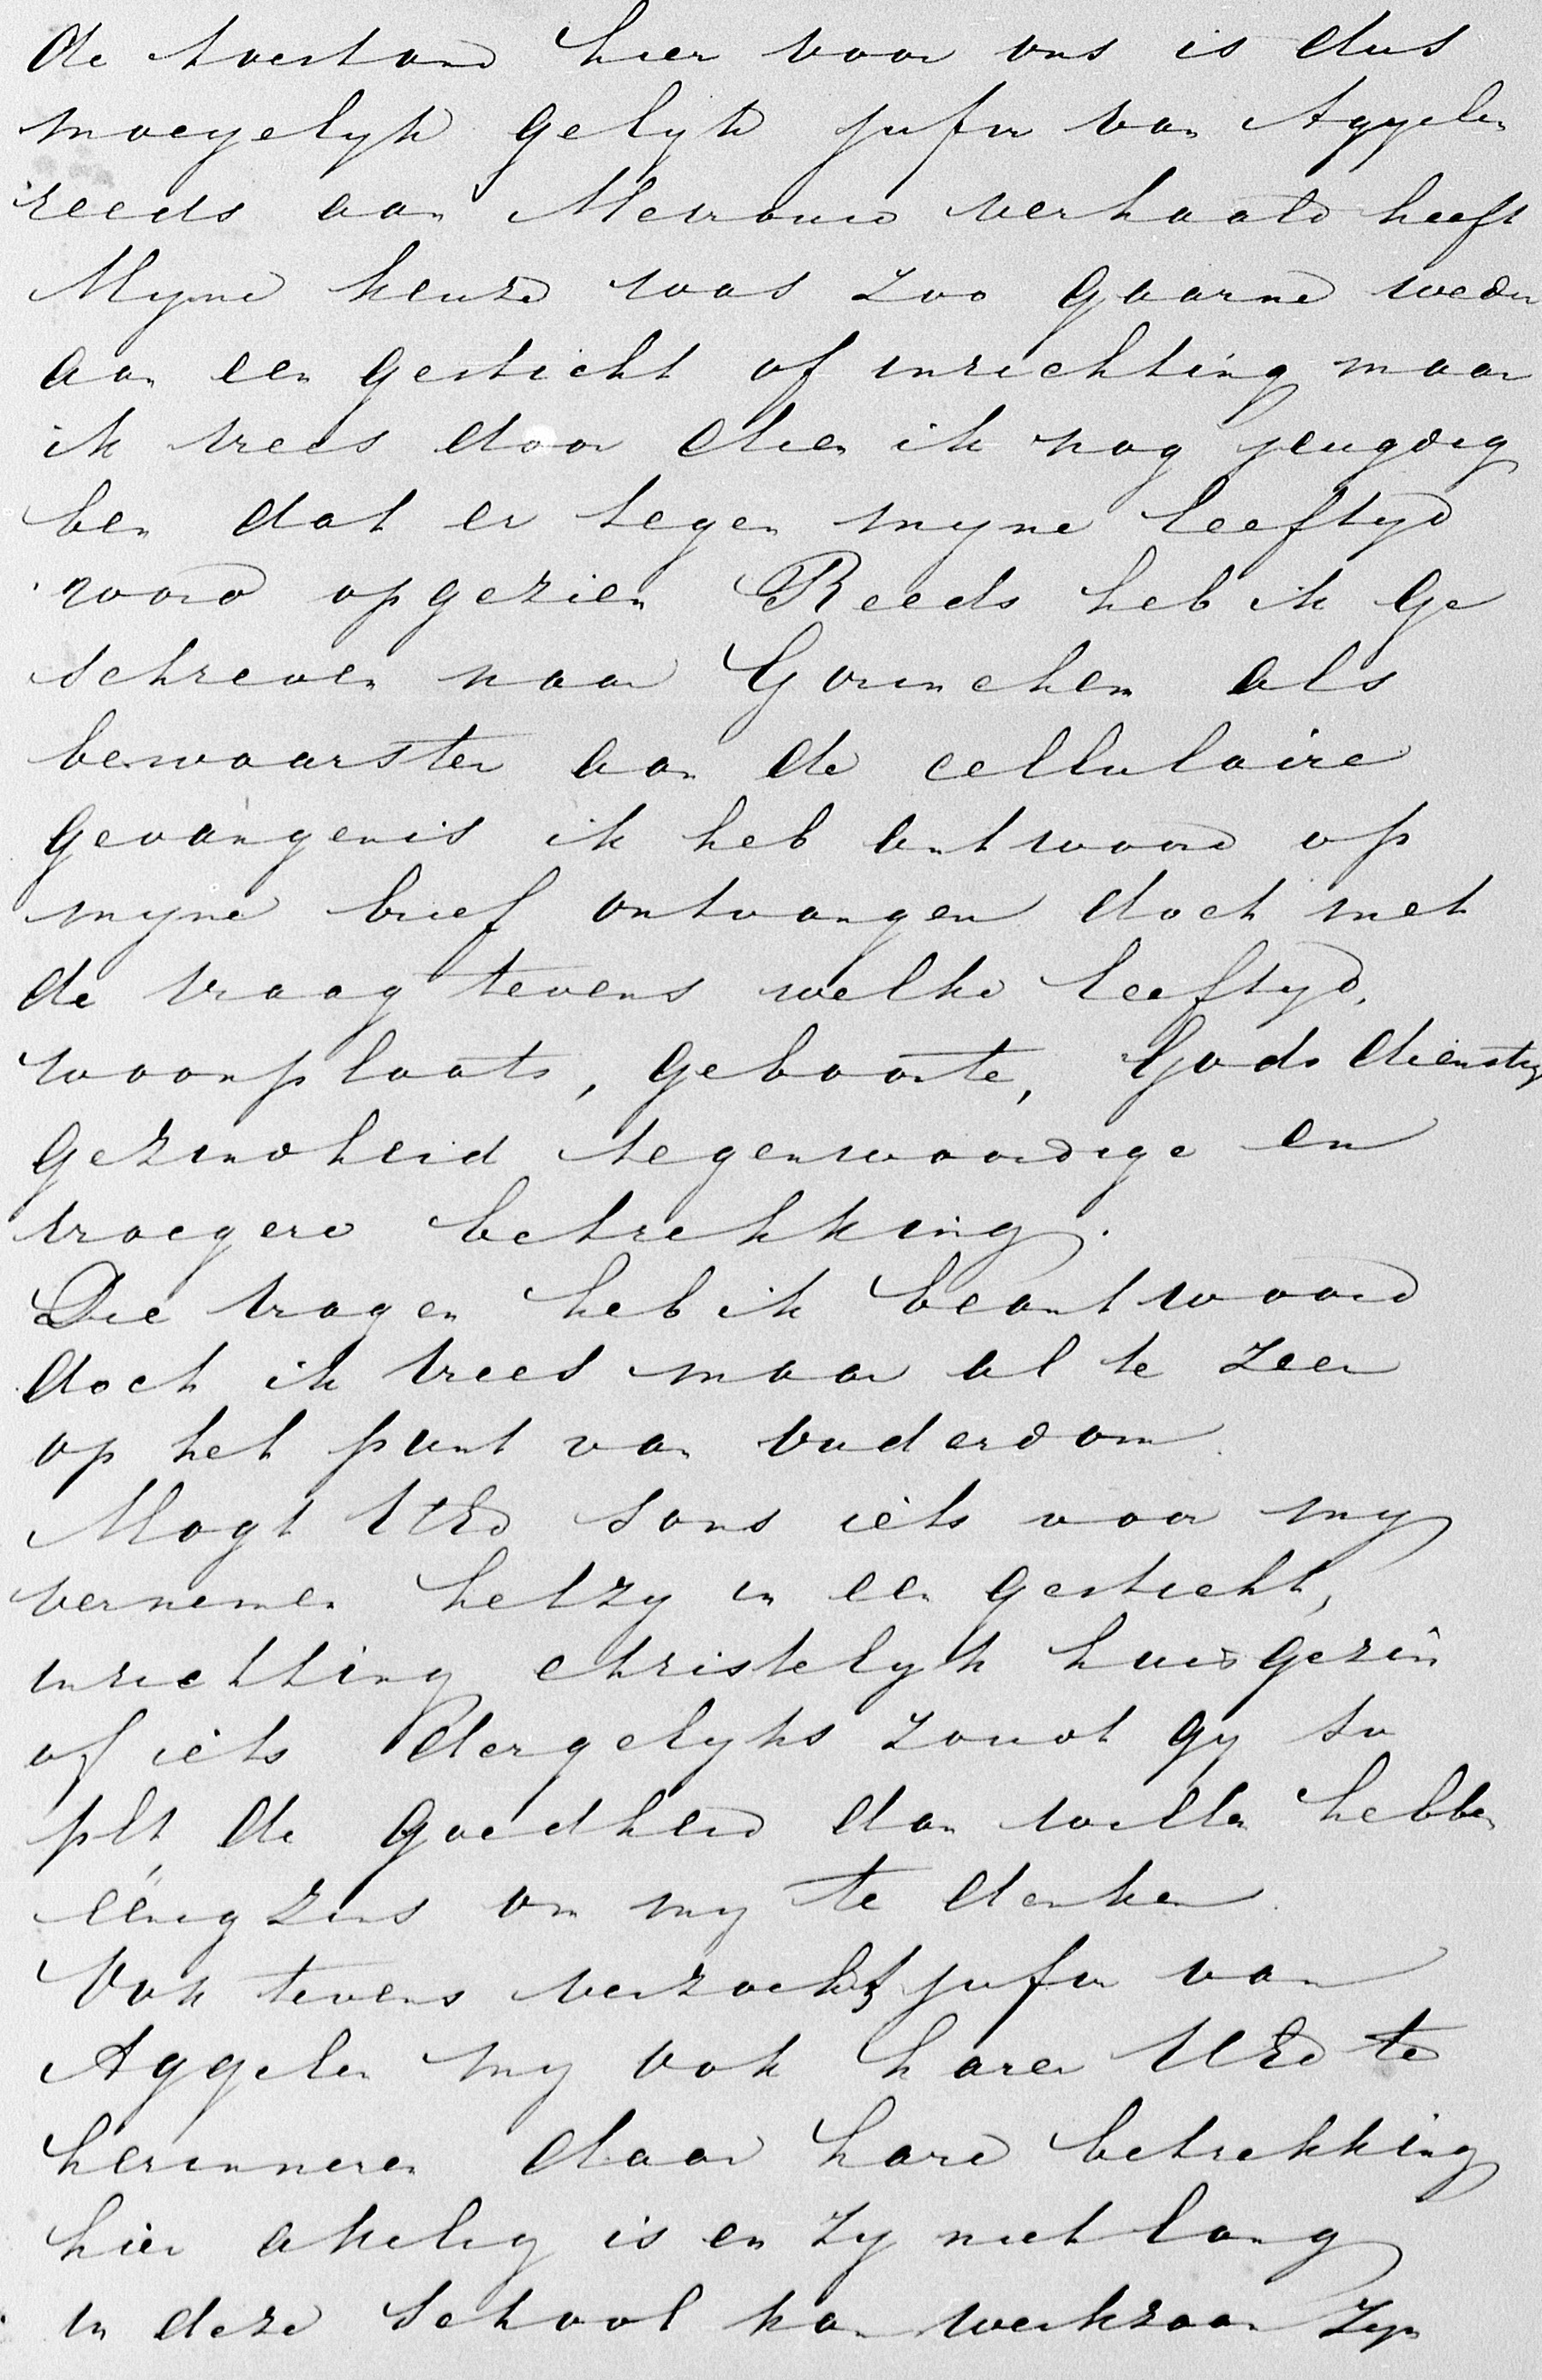 de toestand hier voor ons is dus
moeyelyk gelyk jufvr van Aggelen
reeds aan Mevrouw verhaald heeft
Myne keuze was zoo gaarne weder
aan een gesticht of inrichting maar
ik vrees daar dien ik nog jeugdig
ben dat er tegen myne leeftyd
word opgezien Reeds heb ik ge
schreven naar Gorinchem als
bewaarster aan de cellulaire
gevangenis ik heb antwoord op
myne brief ontvangen doch met
de vraag tevens welke leeftyd,
woonplaats, geboorte, Godsdienstige
gezindheid tegenwoordige en
vroegere betrekking.
Die vragen heb ik beantwoord
doch ik vrees maar al te zeer
op het punt van ouderdom
Mogt UEd soms iets voor my
vernemen hetzy in een gesticht,
inrichting christelyk huisgezin
of iets dergelyks zoudt gy so
plt de goedheid dan willen hebben
éénigzins om my te denken.
Ook tevens verzocht jufvr van
Aggelen my ook haren UEd te
herinneren daar hare betrekking
hier akelig is en zy niet lang
in deze school kan werkzaam zyn